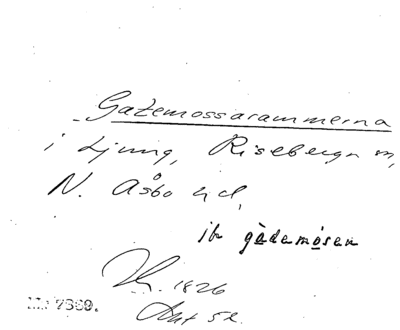 Gatemossarammerna
i Ljung, Riseberga sn,
N. Åsbo hd,
jfr gàdemósen
1826
Ant 52.